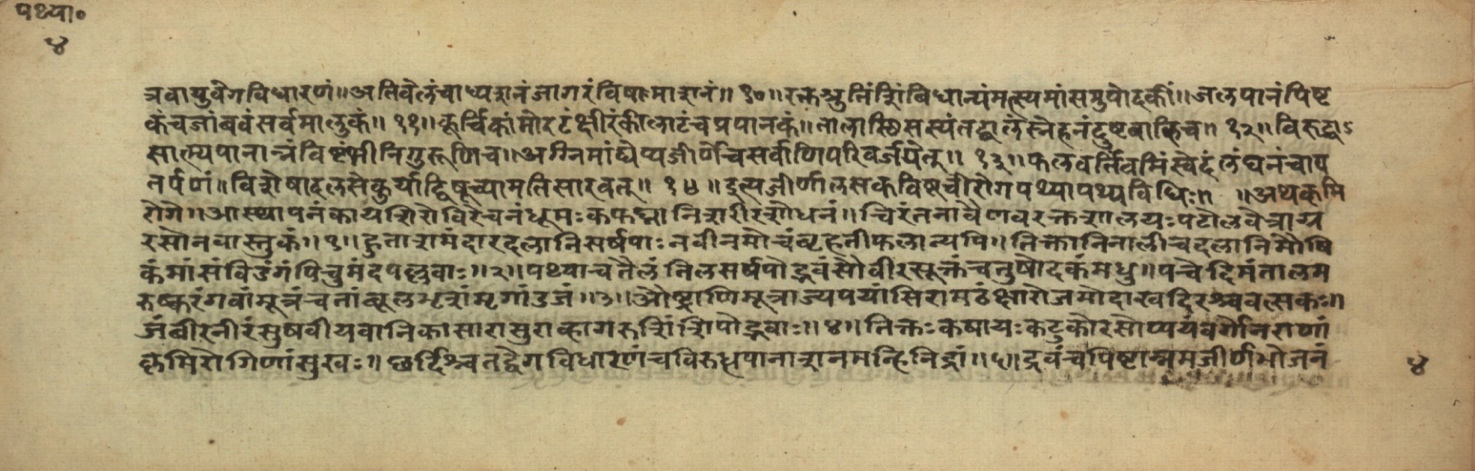 पथ्या०
४
त्रवायुवेगविधारणं॥अतिवेलंचाध्यशनंजागरंविषमाशनं॥१०॥रक्तस्रुतिंशिंबिधान्यंमत्स्यमांसमुपोदकीं॥जलपानंपिष्ट
कंचजांबवंसर्वमालुकं॥११॥कूर्चिकांमोरटंक्षीरंकीलाटंचप्रपानकं॥तालास्थिसस्यंतद्बालंस्नेहनंदुष्टवारिच॥१२॥विरुद्धाऽ
सात्म्यपानान्नंविष्टंभीनिगुरूणिच॥अग्निमांद्येप्यजीर्णेचसर्वाणिपरिवर्जयेत्॥१३॥फलवर्त्तिंवमिंस्वेदंलंघनंचाप
तर्पणं॥विशेषादलसेकुर्याद्विषूच्यामतिसारवत्॥१४॥इत्यजीर्णालसकविषूचीरोगपथ्यापथ्यविधिः॥ ॥अथकृमि
रोगे॥आस्थापनंकायशिरोविरेचनंधूमःकफघ्नानिशरीरशोधनं॥चिरंतनावैणवरक्तशालयःपटोलवेत्राग्र
रसोनवास्तुकं॥१॥हुताशमंदारदलानिसर्षपाःनवीनमोचंबृहतीफलान्यपि॥तिक्तानिनालीचदलानिमौषि
कंमांसंविडंगंपिचुमंदपल्लवाः॥२॥पथ्याचतैलंतिलसर्षपोद्भवंसौवीरसूक्तंचतुषोदकंमधु॥पचेदिमंतालम
रुष्करंगवांमूत्रंचतांबूलमृशंमृगांडजं॥३॥औष्ट्राणिमूत्राज्यपयांसिरामठंक्षारोजमोदाखदिरश्चवत्सकः॥
जंबीरनीरंसुषवीयवानिकासारासुराव्हागरुशिंशिपोद्भवाः॥४॥तिक्तःकषायःकटुकोरसोप्ययंवर्गोनराणां
कृमिरोगिणांसुखः॥छर्दिश्चतद्वेगविधारणंचविरुद्धपानाशनमन्हिनिद्रां॥५॥द्रवंचपिष्टान्नमजीर्णभोजनं
४